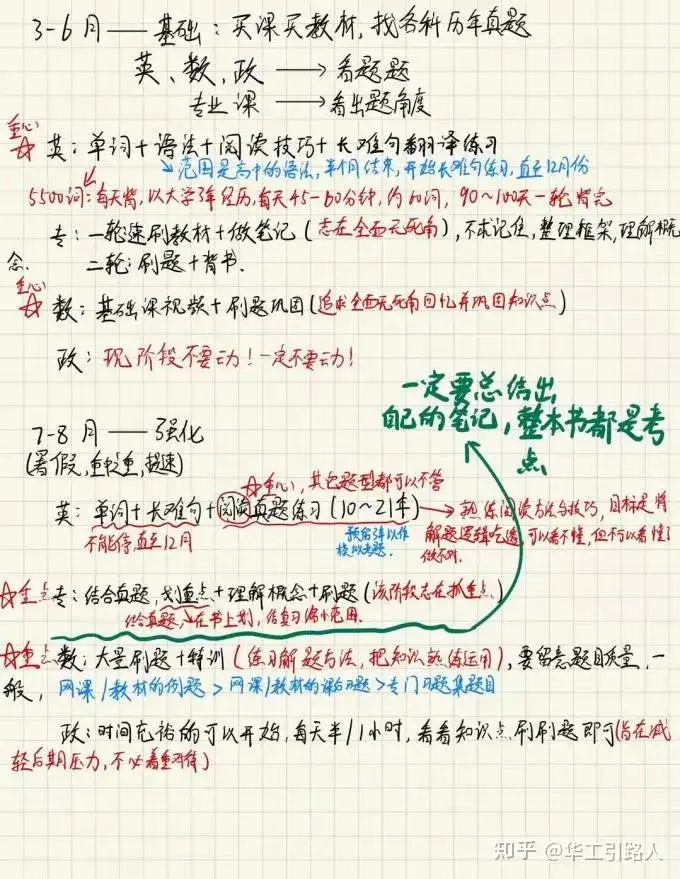 3-6月——基础：买课买教材，找各科历年真题
英、数、政 → 看题题
专业课 → 看出题角度
重心
☆ 英：单词+语法+阅读技巧+长难句翻译练习
→范围是高中的语法，半个月结束，开始长难句练习，直至12月份
5500词：每天背，以大学3年经历，每天45-60分钟，约60词，90～100天一轮背完
专：一轮速刷教材+做笔记（志在全面无死角），不求记住，整理框架，理解概念.
二轮：刷题+背书.
重心
☆ 数：基础课视频+刷题巩固（追求全面无死角回忆并巩固知识点）
政：现阶段不要动！一定不要动！
一定要总结出
自己的笔记，整本书都是考点
7-8月——强化
（暑假，重中之重，提速）
☆重心，其它题型都可以不管
英：单词+长难句+阅读真题练习（10～21年）→熟练阅读方法与技巧，目标是将
不能停，直至12月
预留3年以作
模拟考题.
解题逻辑吃透，可以看不懂，但不可以看懂了
做不对.
☆重点 专：结合真题，划重点+理解概念+刷题（该阶段志在抓重点）
结合真题，在书上划，给复习缩小范围.
☆重点 数：大量刷题+特训（练习解题方法，把知识熟练运用），要留意题目质量，一
般，网课/教材的例题＞网课/教材的课后习题＞专门习题集题目
政：时间充裕的可以开始，每天半/1小时，看看知识点刷刷题即可（旨在减
轻后期压力，不必着重对待）
知乎 @华工引路人